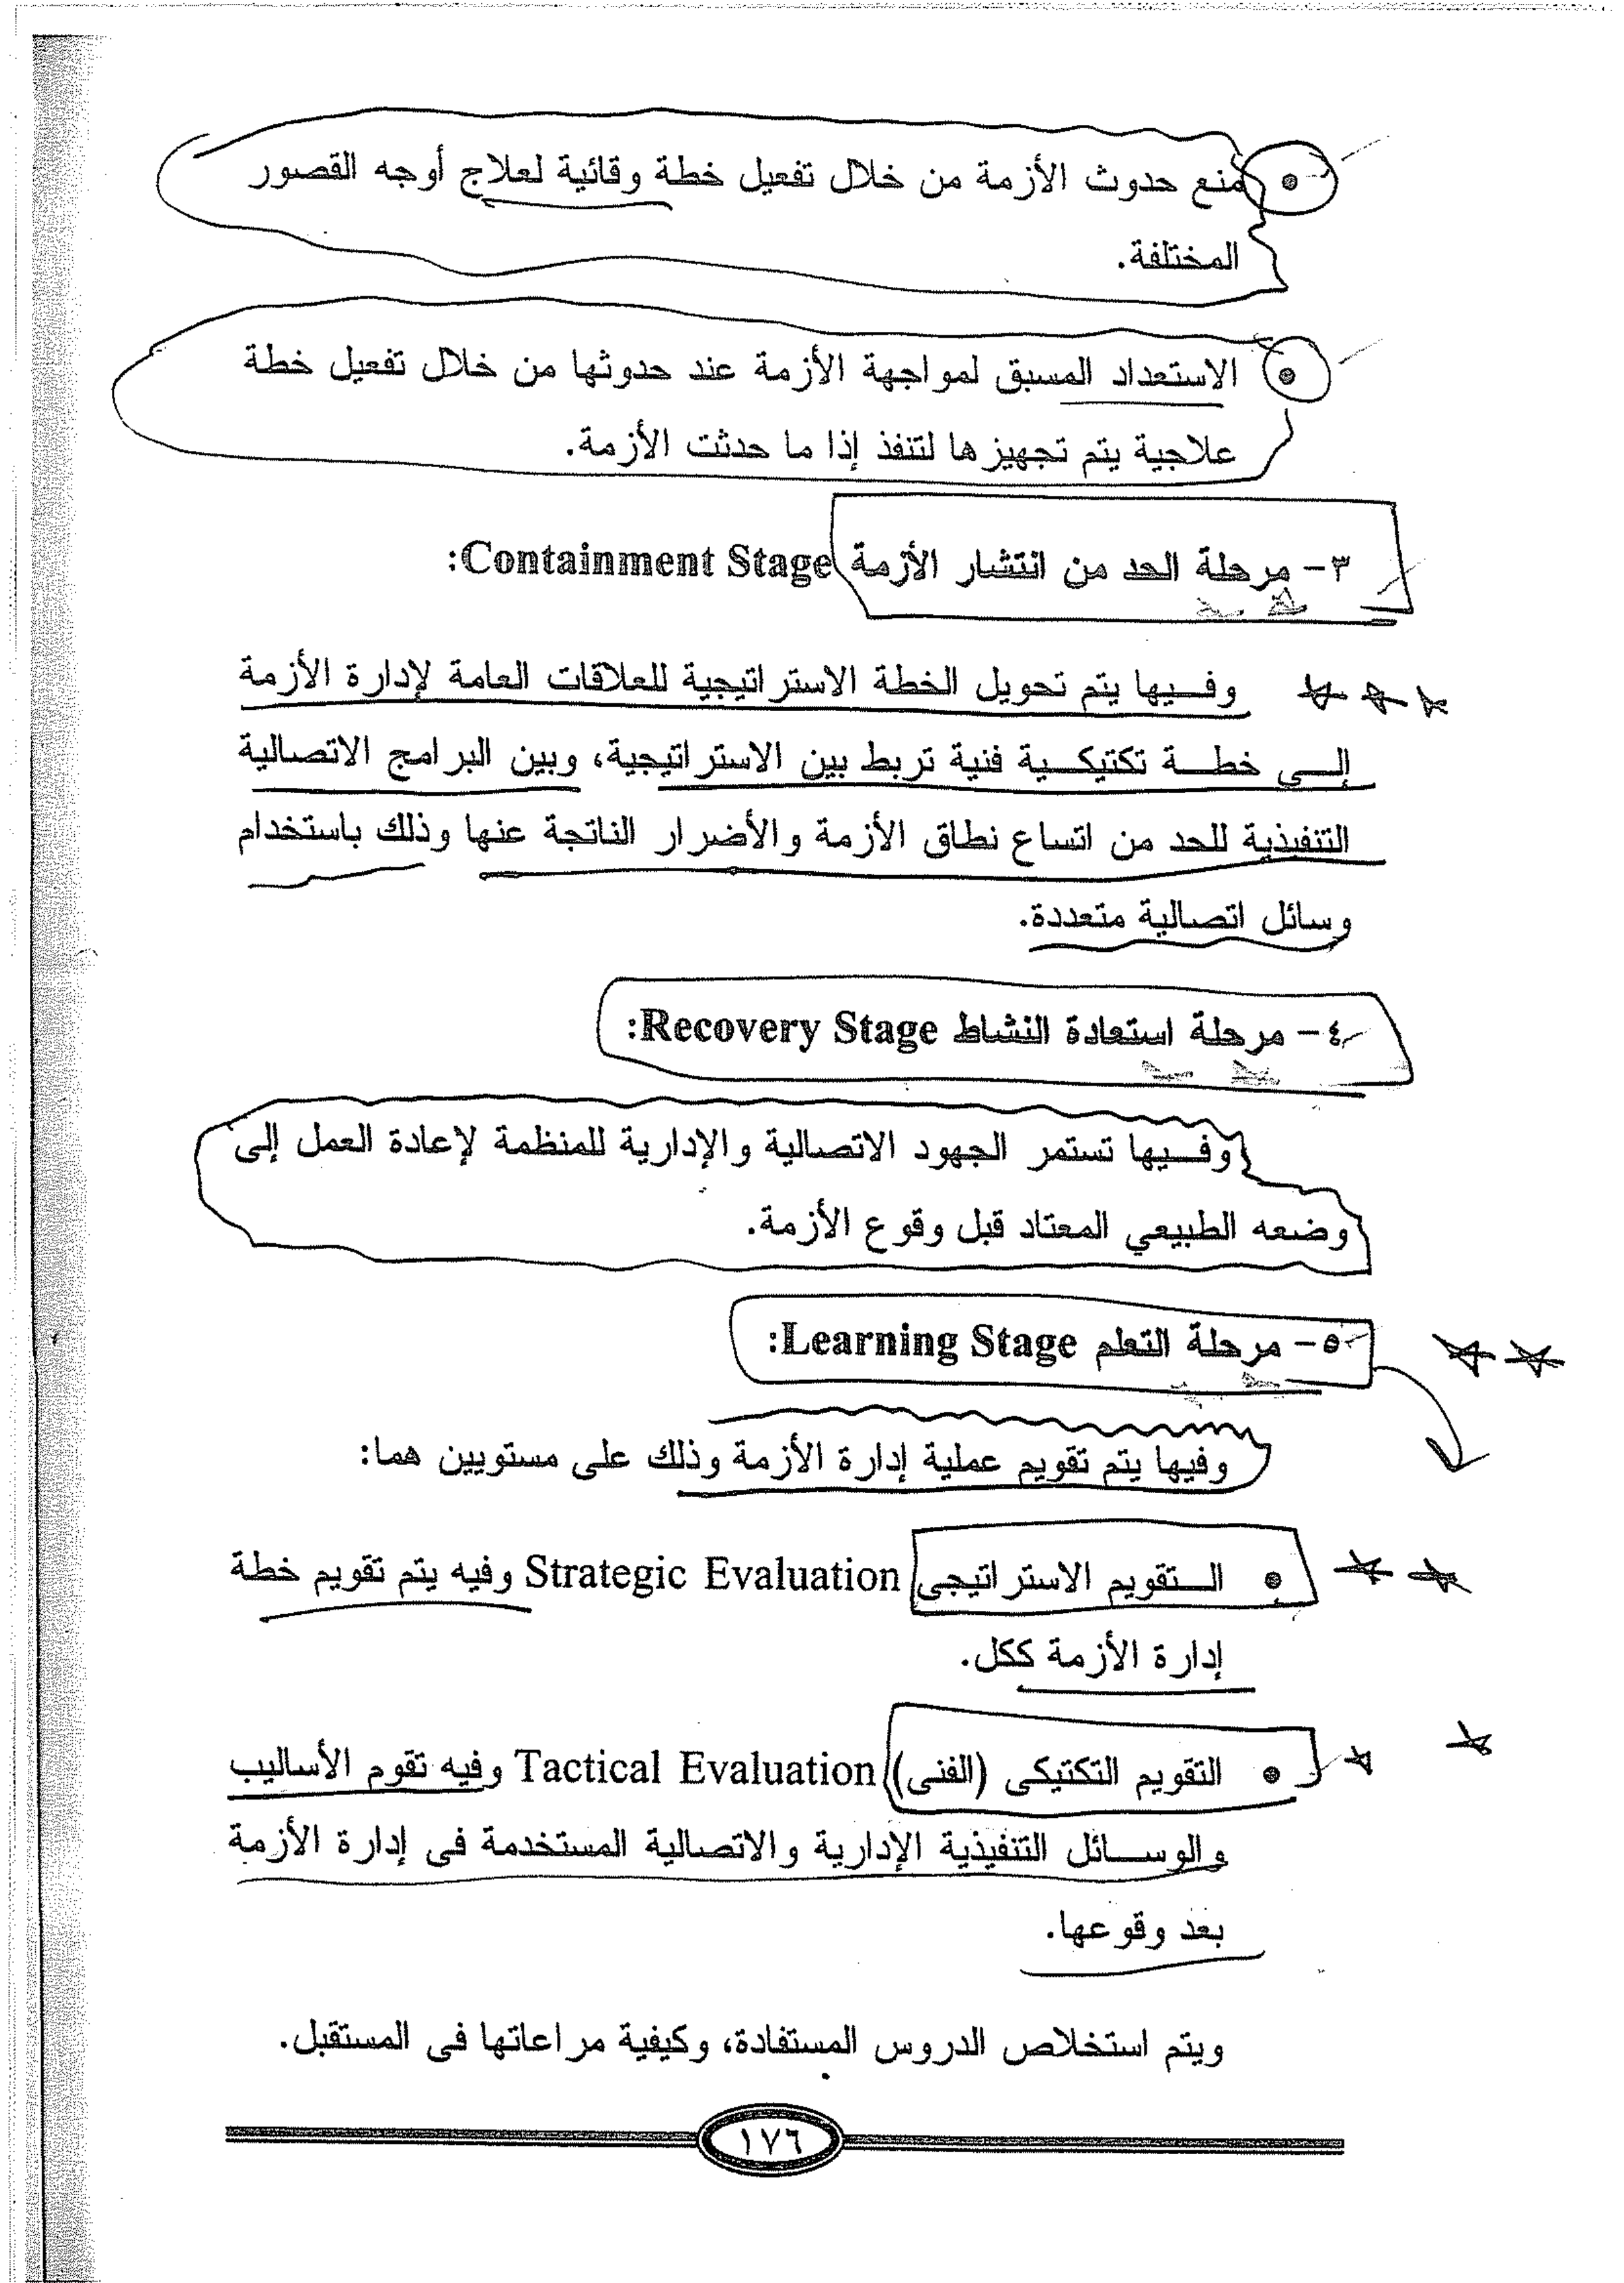 • منع حدوث الأزمة من خلال تفعيل خطة وقائية لعلاج أوجه القصور
المختلفة.
• الاستعداد المسبق لمواجهة الأزمة عند حدوثها من خلال تفعيل خطة
علاجية يتم تجهيزها لتنفذ إذا ما حدثت الأزمة.
٣- مرحلة الحد من انتشار الأزمة Containment Stage:
وفيها يتم تحويل الخطة الاستراتيجية للعلاقات العامة لإدارة الأزمة
إلى خطة تكتيكية فنية تربط بين الاستراتيجية، وبين البرامج الاتصالية
التنفيذية للحد من اتساع نطاق الأزمة والأضرار الناتجة عنها وذلك باستخدام
وسائل اتصالية متعددة.
٤- مرحلة استعادة النشاط Recovery Stage:
وفيها تستمر الجهود الاتصالية والإدارية للمنظمة لإعادة العمل إلى
وضعه الطبيعي المعتاد قبل وقوع الأزمة.
٥- مرحلة التعلم Learning Stage:
وفيها يتم تقويم عملية إدارة الأزمة وذلك على مستويين هما:
• التقويم الاستراتيجى Strategic Evaluation وفيه يتم تقويم خطة
إدارة الأزمة ككل.
• التقويم التكتيكى (الفنى) Tactical Evaluation وفيه تقوم الأساليب
والوسائل التنفيذية الإدارية والاتصالية المستخدمة فى إدارة الأزمة
بعد وقوعها.
ويتم استخلاص الدروس المستفادة، وكيفية مراعاتها فى المستقبل.
١٧٦